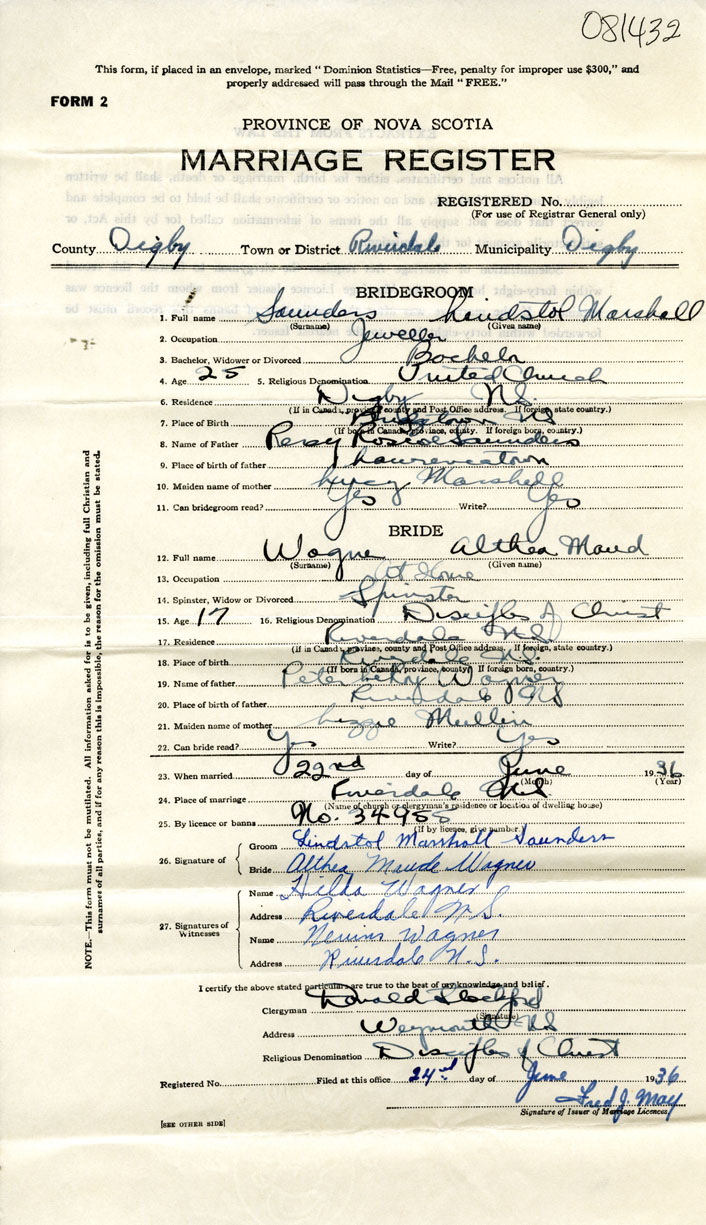 081432
This form, if placed in an envelope, marked " Dominion Statistics—Free, penalty for improper use $300," and
properly addressed will pass through the Mail "FREE."
FORM 2
PROVINCE OF NOVA SCOTIA
MARRIAGE REGISTER
REGISTERED No.
(For use of Registrar General only)
County Digby Town or District Riverdale Municipality Digby
BRIDEGROOM
1. Full name Saunders Lindstol Marshall
(Surname) (Given name)
2. Occupation Jeweller
3. Bachelor, Widower or Divorced Bachelor
4. Age 25 5. Religious Denomination United Church
6. Residence Digby NS.
(If in Canada, province, county and Post Office address. If foreign, state country.)
7. Place of Birth NS
(If born in Canada, province, county. If foreign born, country.)
8. Name of Father Percy Roscoe Saunders
9. Place of birth of father Lawrencetown
10. Maiden name of mother Lucy Marshall
11. Can bridegroom read? Yes Write? Yes
BRIDE
12. Full name Wagner Althea Maud
(Surname) (Given name)
13. Occupation At Home
14. Spinster, Widow or Divorced Spinster
15. Age 17 16. Religious Denomination Disciples of Christ
17. Residence Riverdale NS
(If in Canada, province, county and Post Office address. If foreign, state country.)
18. Place of birth Riverdale NS
(If born in Canada, province, county) If foreign born, country.)
19. Name of father Peter Wagner
20. Place of birth of father Riverdale NS
21. Maiden name of mother Lizzie Mullin
22. Can bride read? Yes Write? Yes
23. When married 22nd day of June 1936
(Month) (Year)
24. Place of marriage Riverdale N.S.
(Name of church or clergyman's residence or location of dwelling house)
25. By licence or banns No. 34955
(If by licence, give number)
26. Signature of
Groom Lindstol Marshall Saunders
Bride Althea Maude Wagner
27. Signatures of Witnesses
Name Hilda Wagner
Address Riverdale N.S.
Name Wagner
Address Riverdale N.S.
I certify the above stated particulars are true to the best of my knowledge and belief.
Clergyman Donald
(Signature)
Address Weymouth NS
Religious Denomination Disciples of Christ
Registered No. Filed at this office 24 day of June 1936
Fred J. May
Signature of Issuer of Marriage Licences
[SEE OTHER SIDE]
NOTE.—This form must not be mutilated. All information asked for is to be given, including full Christian and
surnames of all parties, and if for any reason this is impossible, the reason for the omission must be stated.